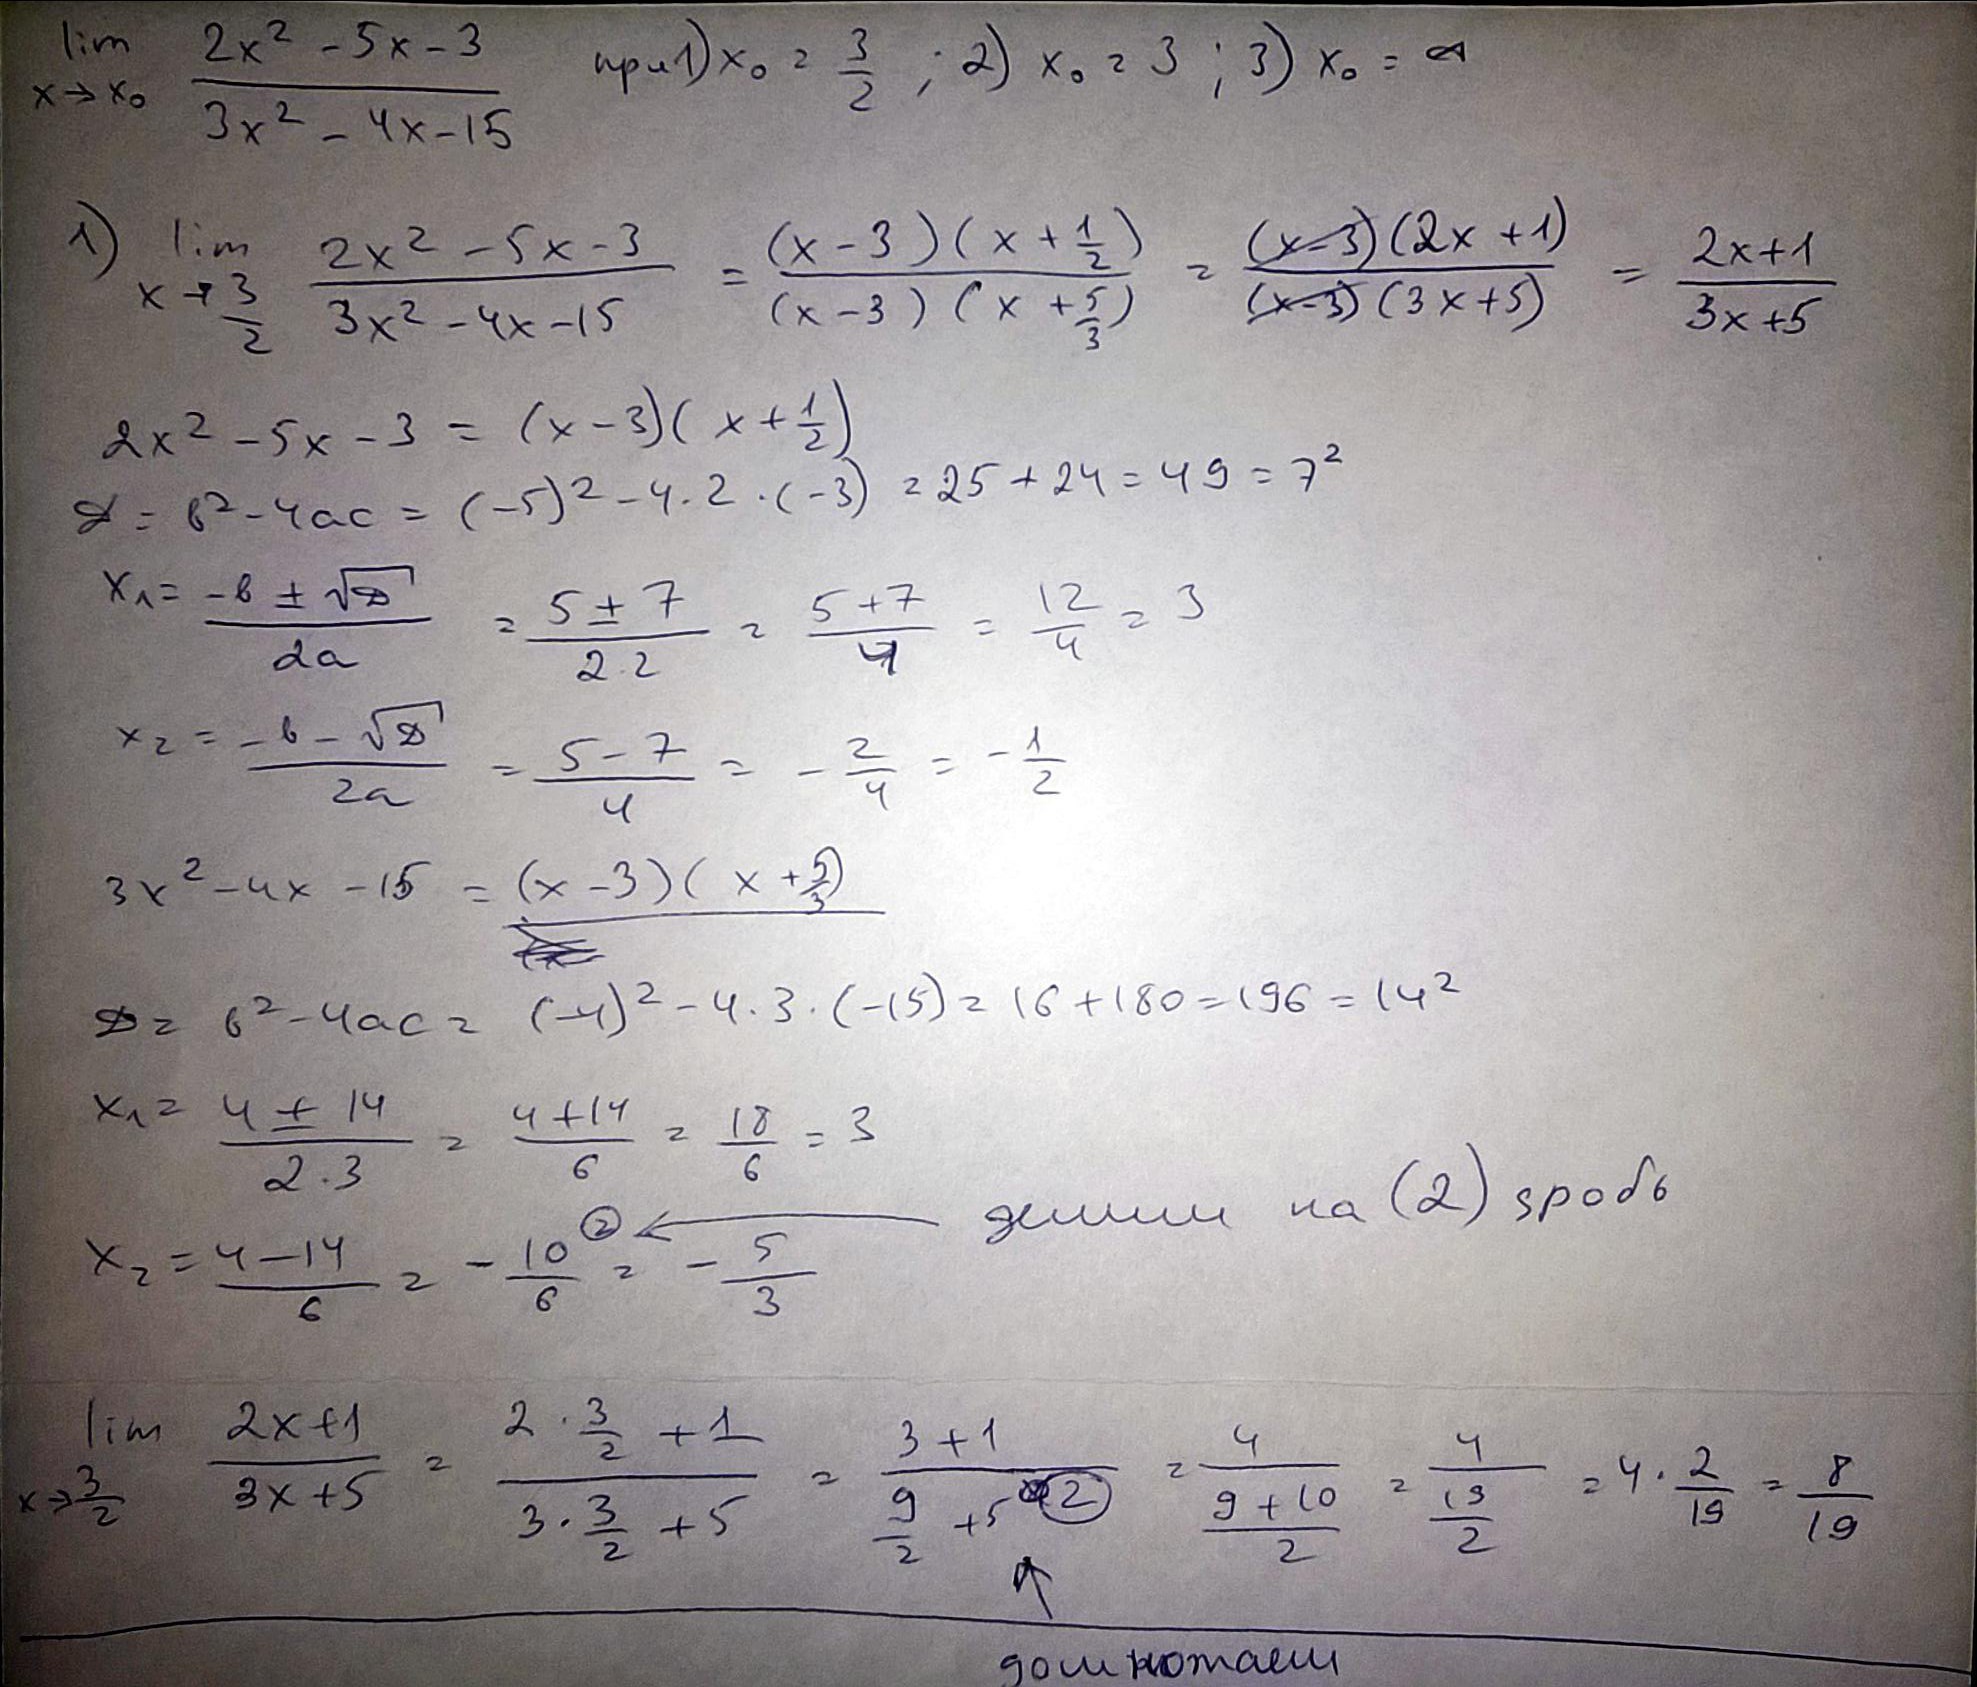 lim x→x₀ (2x² - 5x - 3)/(3x² - 4x - 15) при 1) x₀ = 3/2 ; 2) x₀ = 3 ; 3) x₀ = ∞
1) lim x→3/2 (2x² - 5x - 3)/(3x² - 4x - 15) = ((x - 3)(x + 1/2))/((x - 3)(x + 5/3)) = ((x-3)(2x + 1))/((x-3)(3x+5)) = (2x+1)/(3x+5)
2x² - 5x - 3 = (x-3)(x + 1/2)
D = b² - 4ac = (-5)² - 4·2·(-3) = 25 + 24 = 49 = 7²
x₁ = (-b ± √D)/2a = (5 ± 7)/(2·2) = (5+7)/4 = 12/4 = 3
x₂ = (-b - √D)/2a = (5-7)/4 = -2/4 = -1/2
3x² - 4x - 15 = (x-3)(x + 5/3)
D = b² - 4ac = (-4)² - 4·3·(-15) = 16 + 180 = 196 = 14²
x₁ = (4 ± 14)/(2·3) = (4+14)/6 = 18/6 = 3
x₂ = (4-14)/6 = -10/6 (2) = -5/3 ← делим на (2) дробь
lim x→3/2 (2x+1)/(3x+5) = (2·3/2 + 1)/(3·3/2 + 5) = (3+1)/(9/2 + 5 (2)) = 4/((9+10)/2) = 4/(19/2) = 4·2/19 = 8/19
↑
домножаем